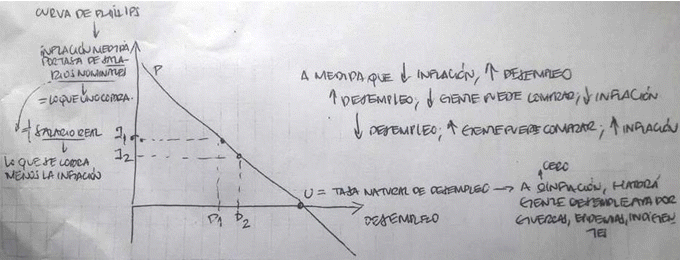 CURVA DE PHILLIPS
INFLACIÓN MEDIDA
POR TASA DE SALA-
RIOS NOMINALES
= LO QUE UNO COBRA.
≠ SALARIO REAL
LO QUE SE COBRA
MENOS LA INFLACIÓN
P
I1
I2
D1
D2
DESEMPLEO
A MEDIDA QUE ↓ INFLACIÓN, ↑ DESEMPLEO
↑ DESEMPLEO, ↓ GENTE PUEDE COMPRAR; ↓ INFLACIÓN
↓ DESEMPLEO; ↑ GENTE PUEDE COMPRAR; ↑ INFLACIÓN
U = TASA NATURAL DE DESEMPLEO → A 0 INFLACIÓN, HABRÁ
CERO
GENTE DESEMPLEADA POR
GUERRAS, EPIDEMIAS, INDIGEN-
TES